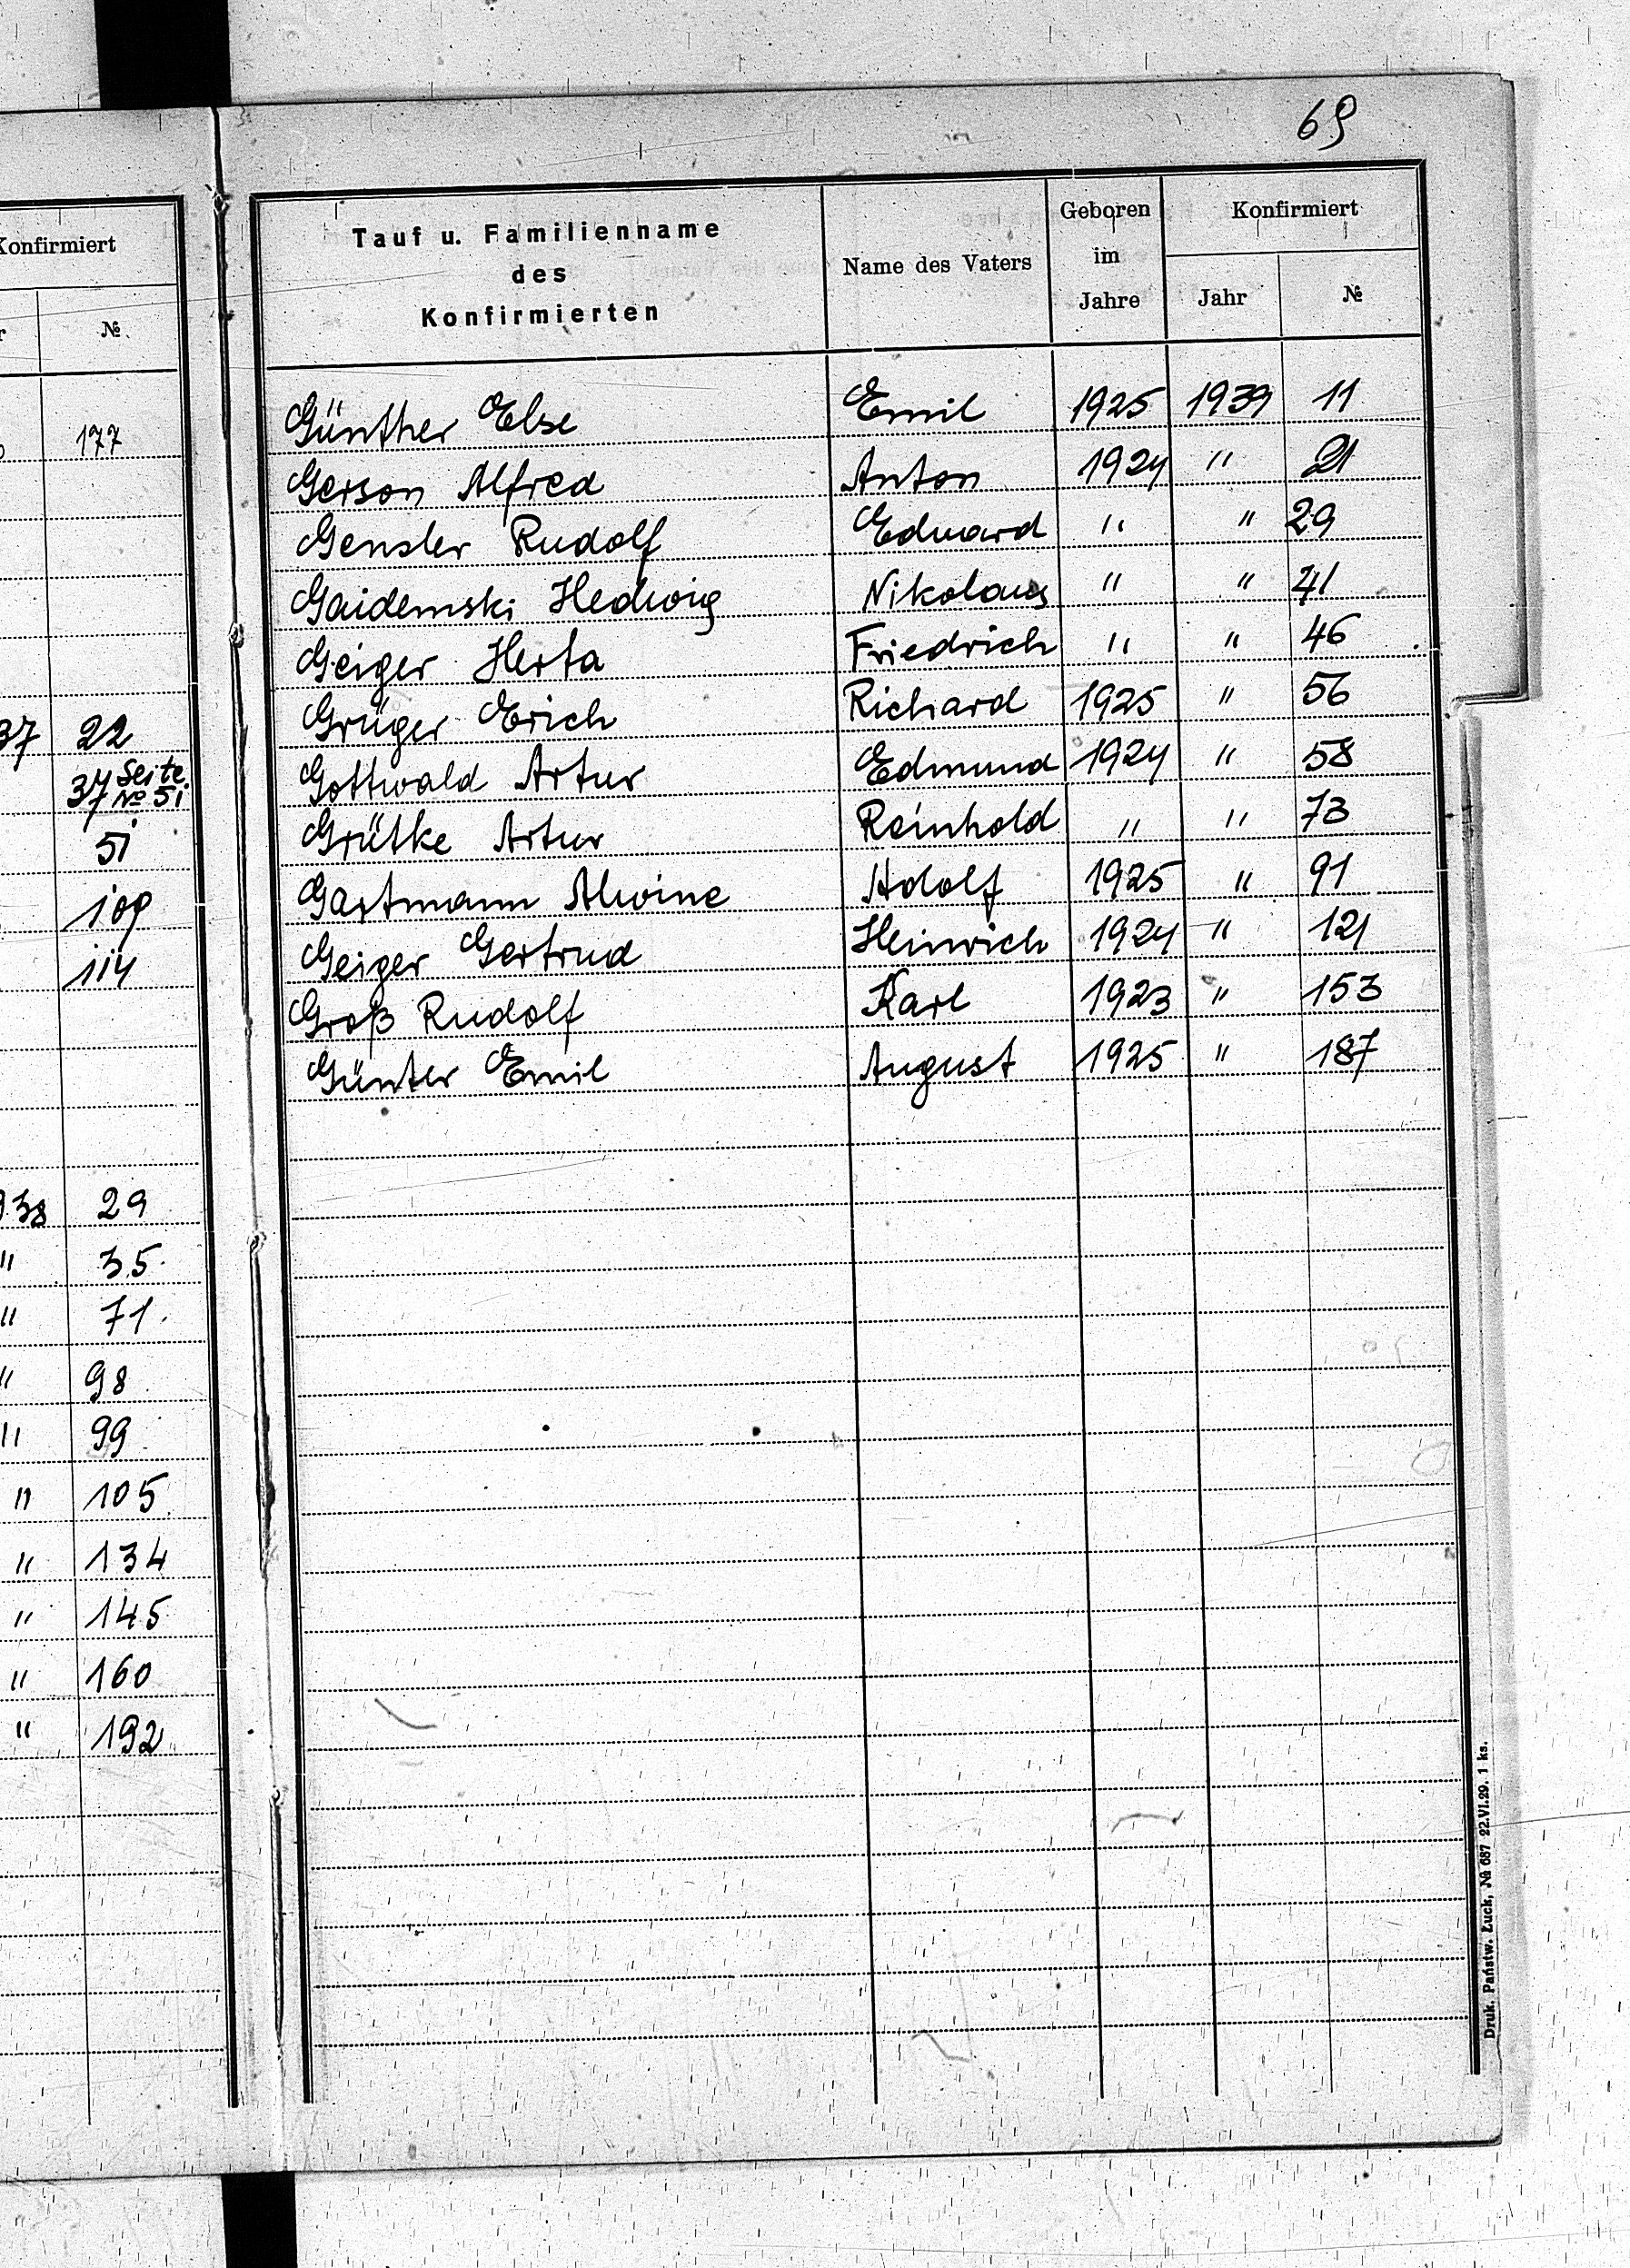 69
Konfirmiert
№
177
37 22
37 Seite № 51
51
109
114
38 29
" 35
" 71
" 98
" 99
" 105
" 134
" 145
" 160
" 192
Tauf u. Familienname des Konfirmierten | Name des Vaters | Geboren im Jahre | Konfirmiert
Jahr | №
Günther Else Emil 1925 1939 11
Gerson Alfred Anton 1924 " 21
Gensler Rudolf Eduard " " 29
Gaidemski Hedwig Nikolaus " " 41
Geiger Herta Friedrich " " 46
Grüger Erich Richard 1925 " 56
Gottwald Artur Edmund 1924 " 58
Grütke Artur Reinhold " " 73
Gartmann Alwine Adolf 1925 " 91
Geiger Gertrud Heinrich 1924 " 121
Groß Rudolf Karl 1923 " 153
Günter Emil August 1925 " 187
Druk. Państw. Łuck, № 687 22.VI.29. 1 ks.